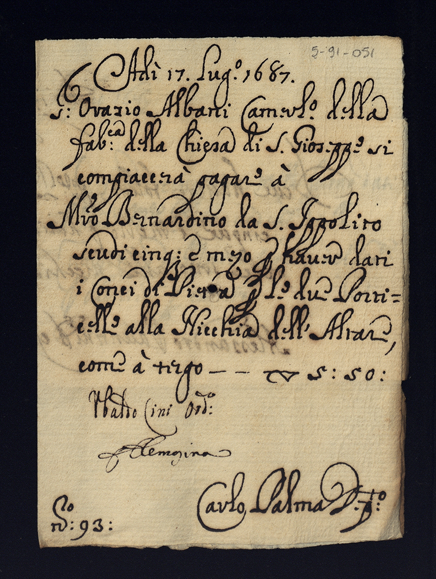 5-91-051
6 Adì 17. Lug.º 1687.
S.r Orazio Albani Camerl.º della
fab.ca della Chiesa di S. Gioseppe si
compiacerà pagare à
M.ro Bernardino da S. Ippolito
scudi cinq: è mezo p haver dati
i Conci di Pietra p le due Porti=
celle alla Nicchia dell'Altare,
come à tergo — — 5: 50:
Ubaldo Cini Ord.º
Carlo Palma
N.º 93: